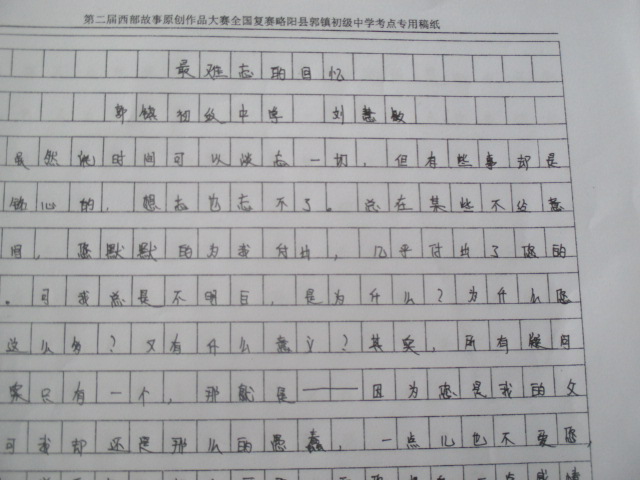 第二届西部故事原创作品大赛全国复赛略阳县郭镇初级中学考点专用稿纸
最难忘的回忆
郭镇初级中学 刘慧敏
虽然说时间可以淡忘一切，但有些事却是
铭心的，想忘也忘不了。总在某些不经意
间，您默默的为我付出，几乎付出了您的
。可我总是不明白，是为什么？为什么您
这么多？又有什么意义？其实，所有疑问
案只有一个，那就是——因为您是我的父
可我却还是那么的愚蠢，一点儿也不爱您，